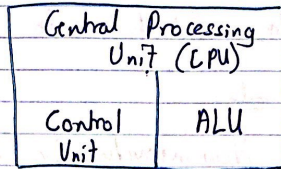 Central Processing
Unit (CPU)
Control ALU
Unit